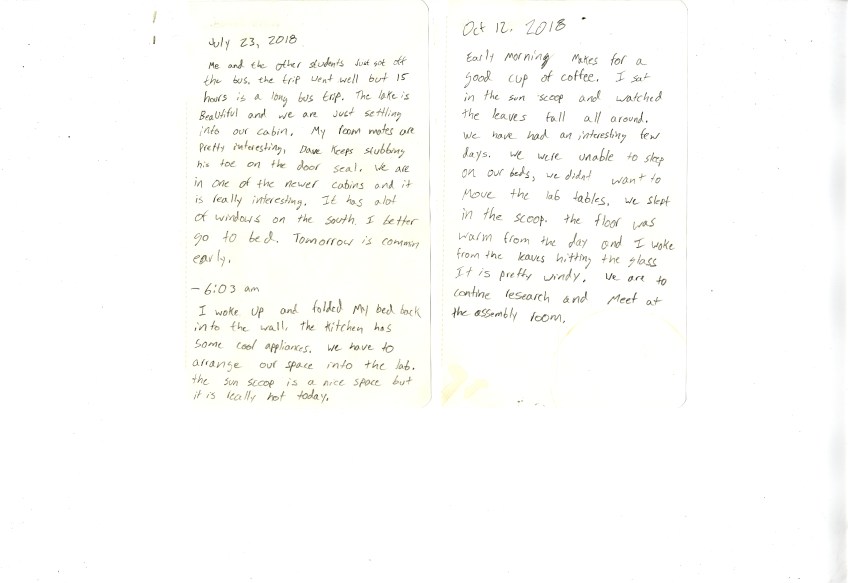 July 23, 2018
Me and the other students Just got off
the bus. the trip went well but 15
hours is a long bus trip. The lake is
Beautiful and we are Just settling
into our cabin. My room mates are
Pretty interesting, Dave Keeps stubbing
his toe on the door seal. we are
in one of the newer cabins and it
is really interesting. It has alot
of windows on the south. I better
go to bed. Tomorrow is common
early.
- 6:03 am
I woke up and folded My bed back
into the wall. the kitchen has
some cool appliances. we have to
arrange our space into the lab.
the sun scoop is a nice space but
it is really hot today.
Oct 12. 2018
Early Morning Makes for a
good cup of coffee. I sat
in the sun scoop and watched
the leaves fall all around.
we have had an interesting few
days. we were unable to sleep
on our beds, we didnt want to
Move the lab tables. we slept
in the scoop. the floor was
warm from the day and I woke
from the leaves hitting the glass
It is pretty windy. we are to
contine research and Meet at
the assembly room.